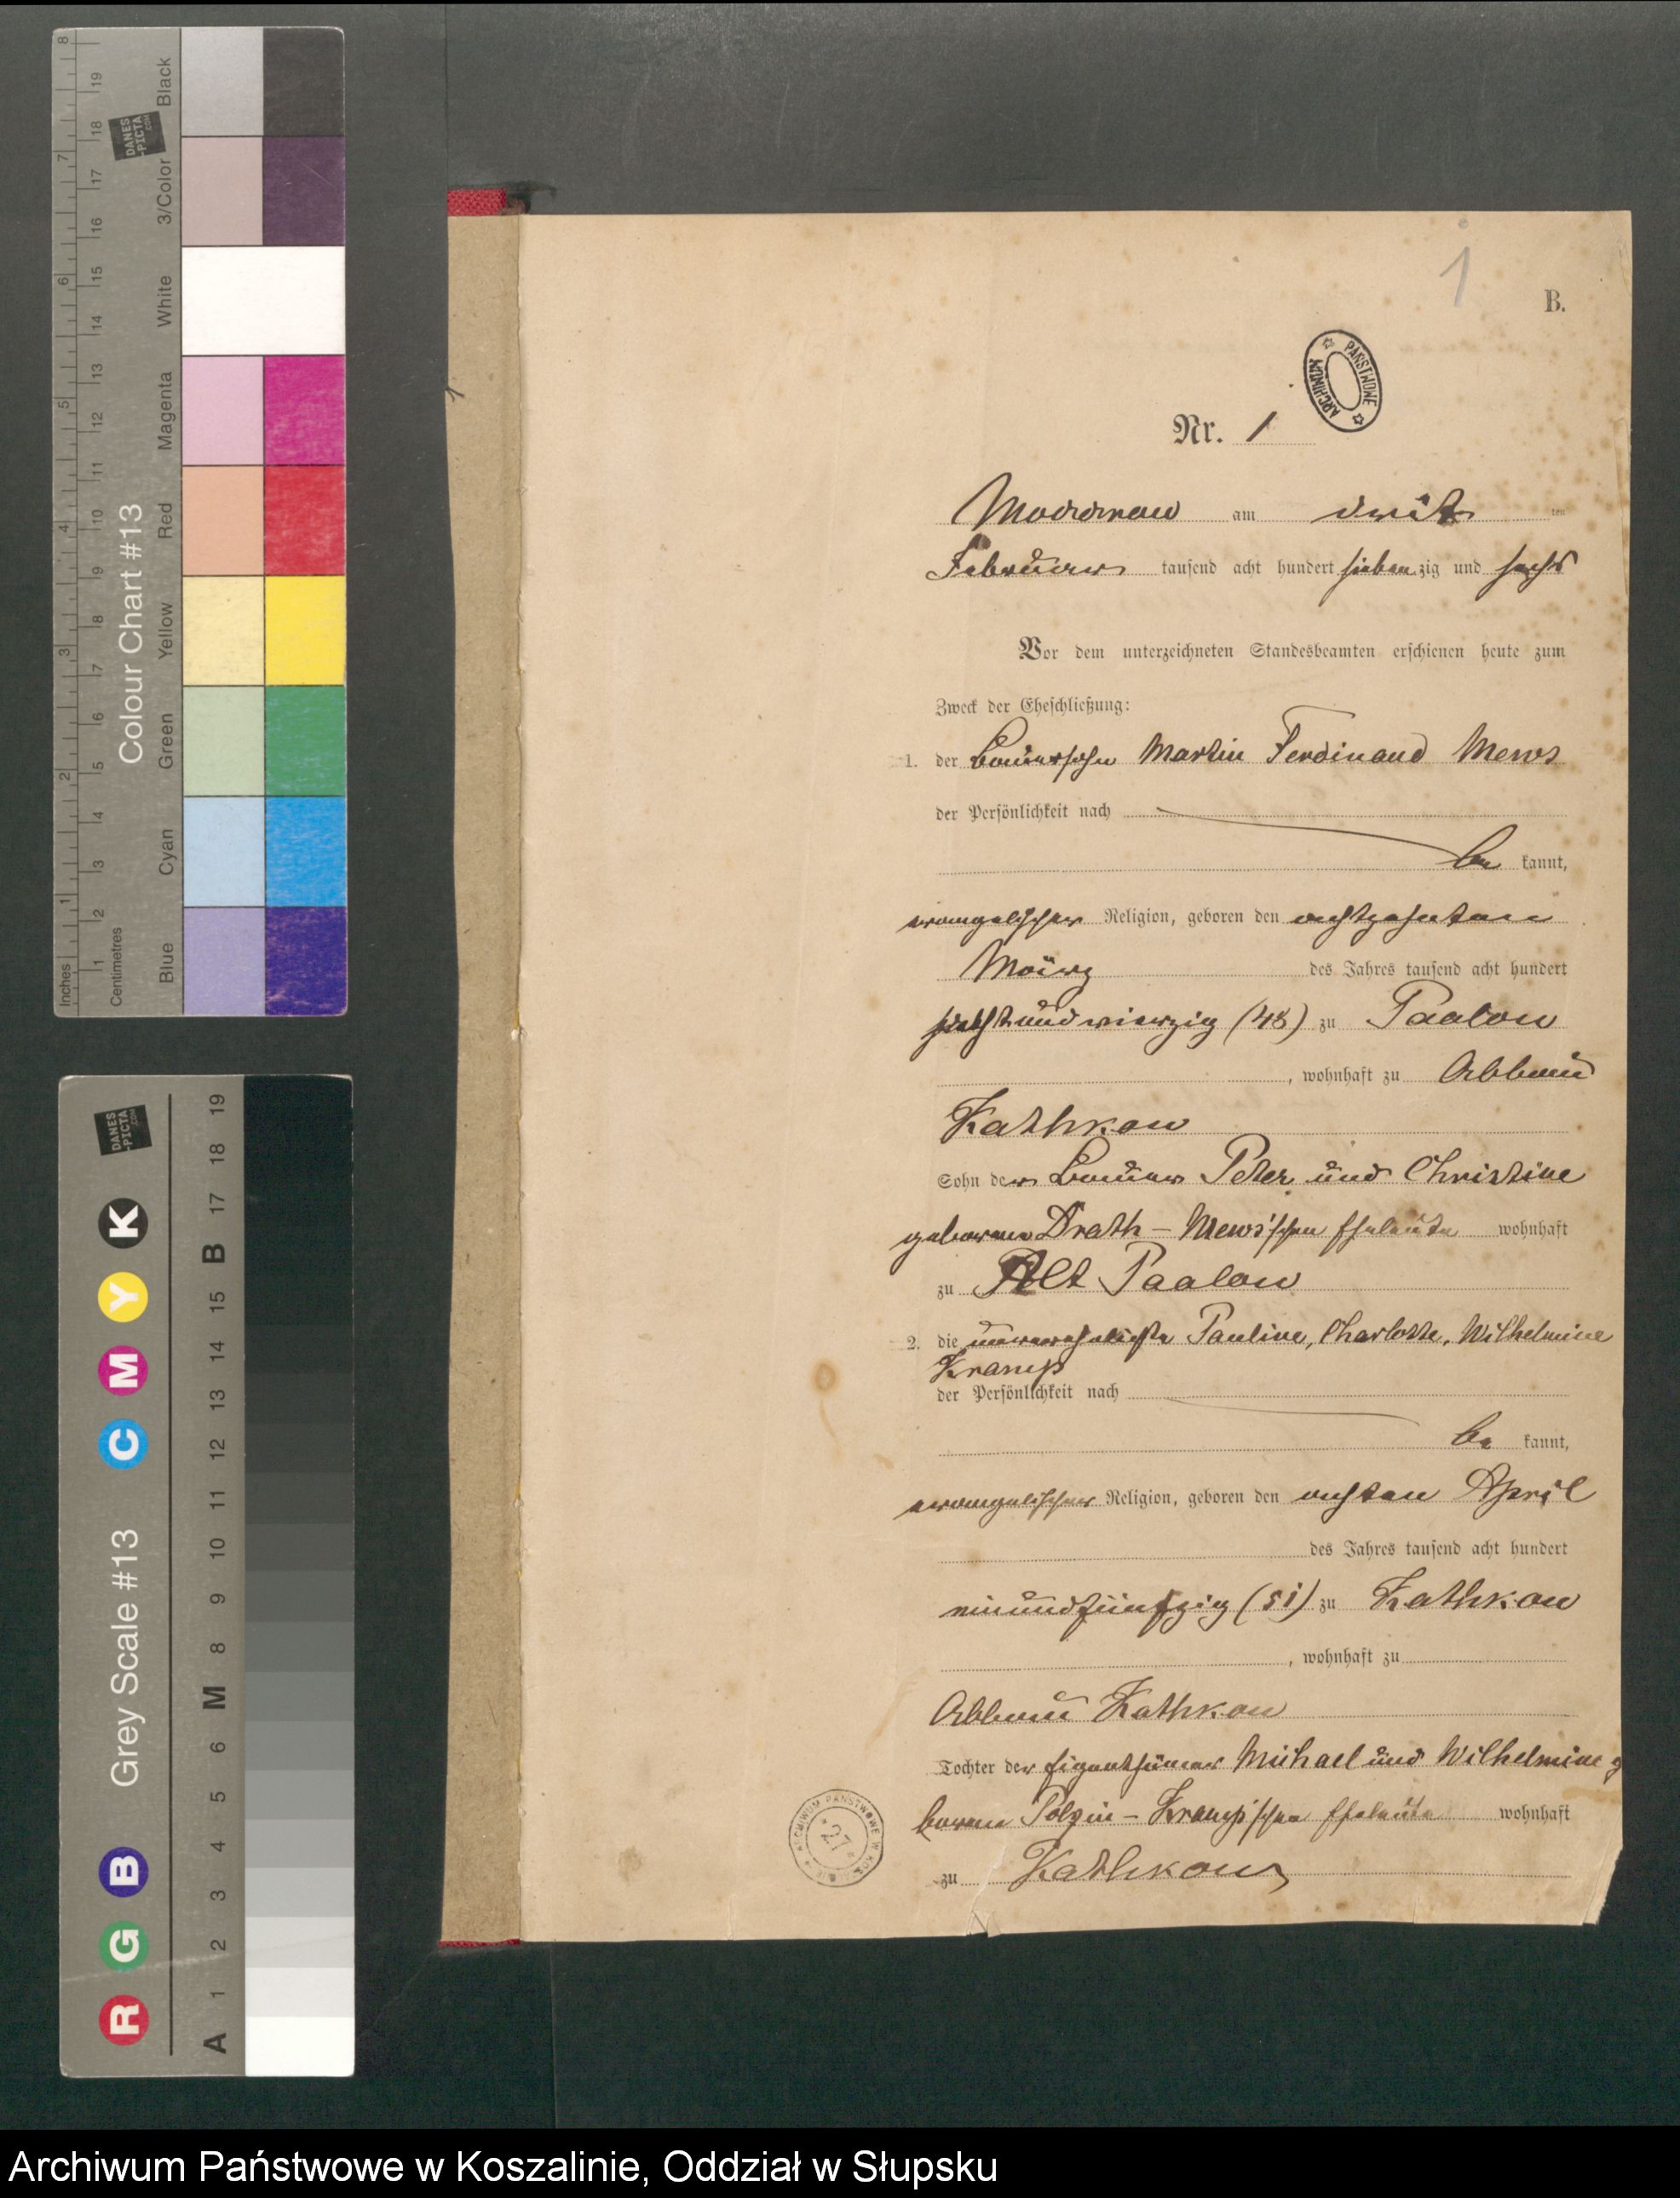 8
7
6
5
4
3
2
1
Inches
19
18
17
16
15
14
13
12
11
10
9
8
7
6
5
4
3
2
1
Centimetres
Colour Chart #13
DANES
-PICTA
.COM
Black
3/Color
White
Magenta
Red
Yellow
Green
Cyan
Blue
DANES
-PICTA
.COM
Grey Scale #13
K
Y
M
C
B
G
R
19
18
17
B
15
14
13
12
11
10
9
8
M
6
5
4
3
2
1
A
1
B.
ARCHIWUM PAŃSTWOWE
Nr. 1
am dritten
Februar tausend acht hundert siebenzig und sechs
Vor dem unterzeichneten Standesbeamten erschienen heute zum
Zweck der Eheschließung:
1. der Bauersohn Martin Ferdinand Mews
der Persönlichkeit nach
be kannt,
evangelischer Religion, geboren den achtzehnten
März des Jahres tausend acht hundert
achtundvierzig (48) zu Paalow
, wohnhaft zu Abbau
Kathkow
Sohn der Bauer Peter und Christine
geborene Drath - Mews'schen Eheleute wohnhaft
zu Alt Paalow
2. die unverehelichte Pauline, Charlotte, Wilhelmine
Kramp
der Persönlichkeit nach
be kannt,
evangelischer Religion, geboren den achten April
des Jahres tausend acht hundert
einundfünfzig (51) zu Kathkow
, wohnhaft zu
Abbau Kathkow
Tochter der Eigenthümer Michael und Wilhelmine ge
borene Polzin - Kramp'schen Eheleute wohnhaft
zu Kathkow
ARCHIWUM PAŃSTWOWE W
27
Archiwum Państwowe w Koszalinie, Oddział w Słupsku